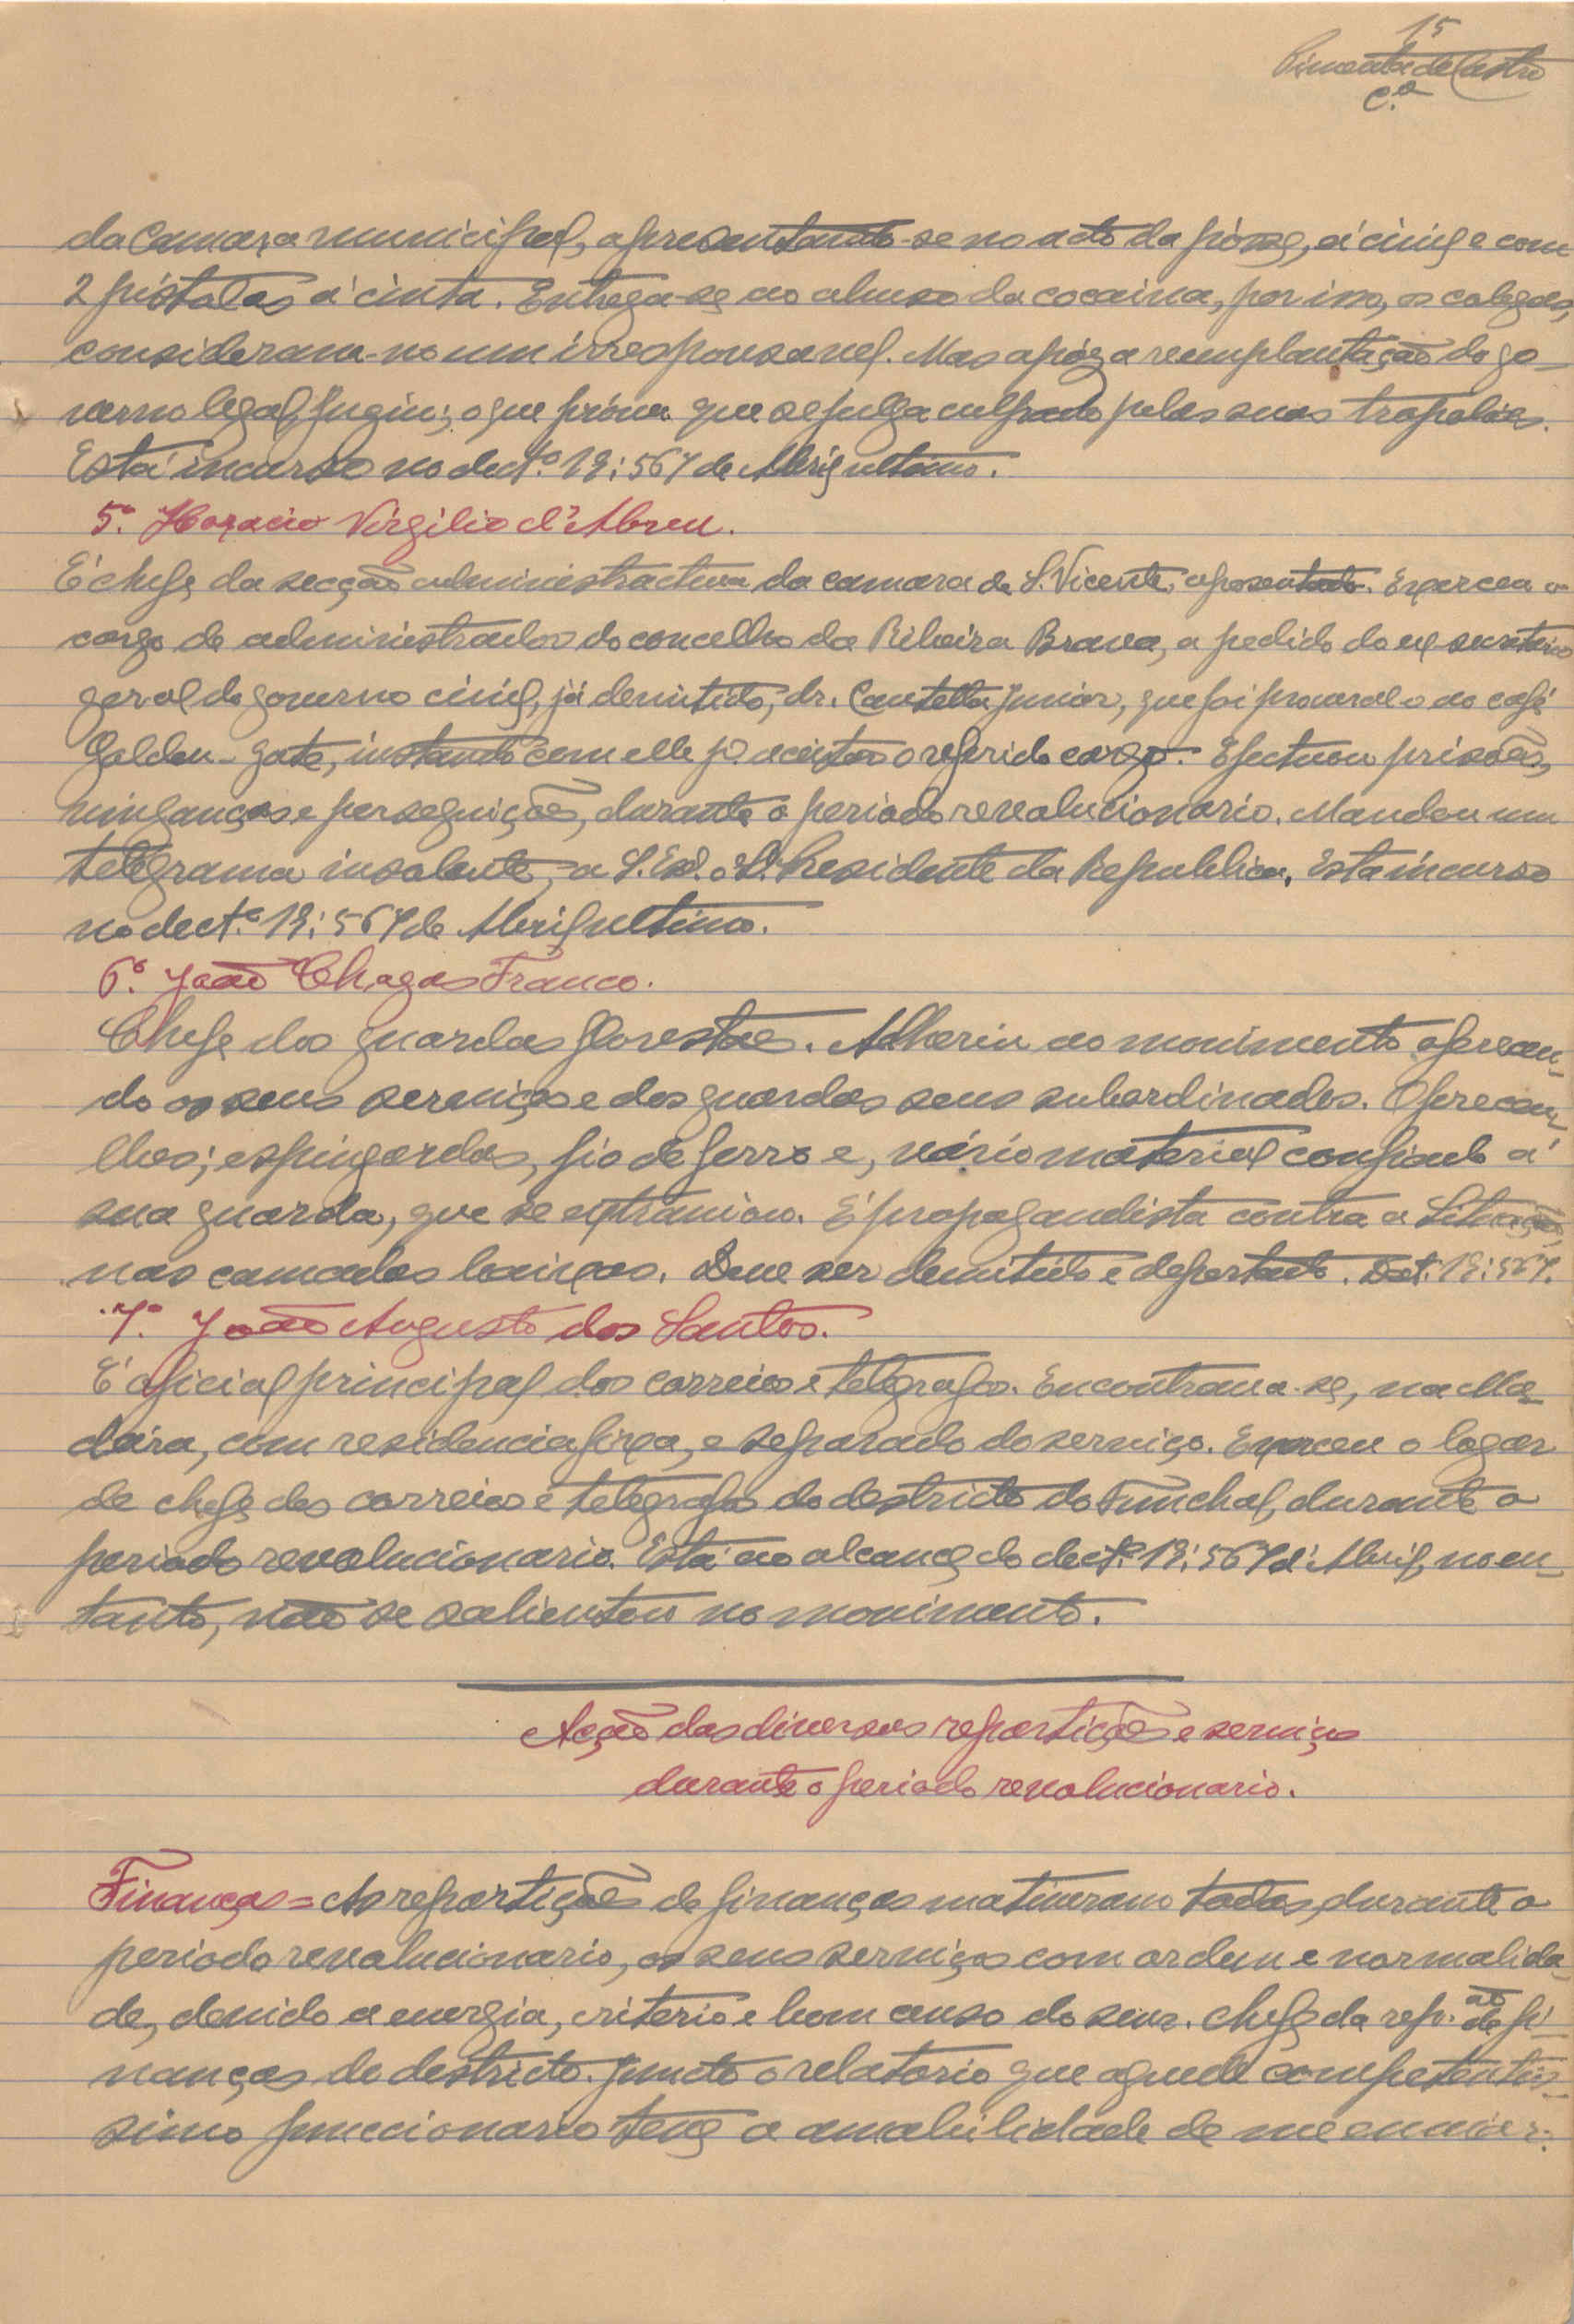 15
Pimenta de Castro
C.ª
da Camara municipal, apresentando-se no acto da pósse, á civil e com
2 pistolas á cinta. Entrega-se ao abuso da cocaina, por isso, os colegas,
consideram-no um irresponsavel. Mas após a reimplantação do go-
verno legal, fugiu; o que próva que se julga culpado pelas suas tropelias.
Está incurso no dect.º 19:567 de Abril ultimo.
5.º Horacio Virgilio d'Abreu.
É chefe da secção administractiva da camara de S. Vicente, aposentado. Exerceu o
cargo de administrador do concelho da Ribeira Brava, a pedido do ex-secretario
geral do governo civil, já demitido, dr. Cautella Junior, que foi procural-o ao café
Golden-gate, instando com elle p.ª aceitar o referido cargo. Efectuou prisões,
vinganças e perseguições, durante o periodo revolucionario. Mandou um
telegrama insolente, a S. Ex.ª o Sr. Presidente da Republica. Está incurso
no dect.º 19:567 de Abril ultimo.
6.º João Chagas Franco.
Chefe dos guardas florestaes. Adheriu ao movimento oferecen-
do os seus serviços e dos guardas seus subordinados. Ofereceu-
lhes; espingardas, fio de ferro e, vário material confiado á
sua guarda, que se extraviou. É propagandista contra a Situação,
nas camadas baixas. Deve ser demitido e deportado. Dect. 19:567.
7.º João Augusto dos Santos.
É oficial principal dos correios e telegrafos. Encontrava-se, na Ma-
deira, com residencia fixa, e separado do serviço. Exerceu o logar
de chefe dos correios e telegrafos do destricto do Funchal, durante o
periodo revolucionario. Está ao alcance do dect.º 19:567 d'Abril, no en-
tanto, não se salientou no movimento.
Acção das diversas repartições e serviços
durante o periodo revolucionario.
Finanças = As repartições de finanças mativeram todas, durante o
periodo revolucionario, os seus serviços com ordem e normalida-
de, devido a energia, criterio e bom censo do senr. chefe da rep.ªº de fi-
nanças do destricto. Juncto o relatorio que aquele competentis-
simo funccionario teve a amabilidade de me enviar.